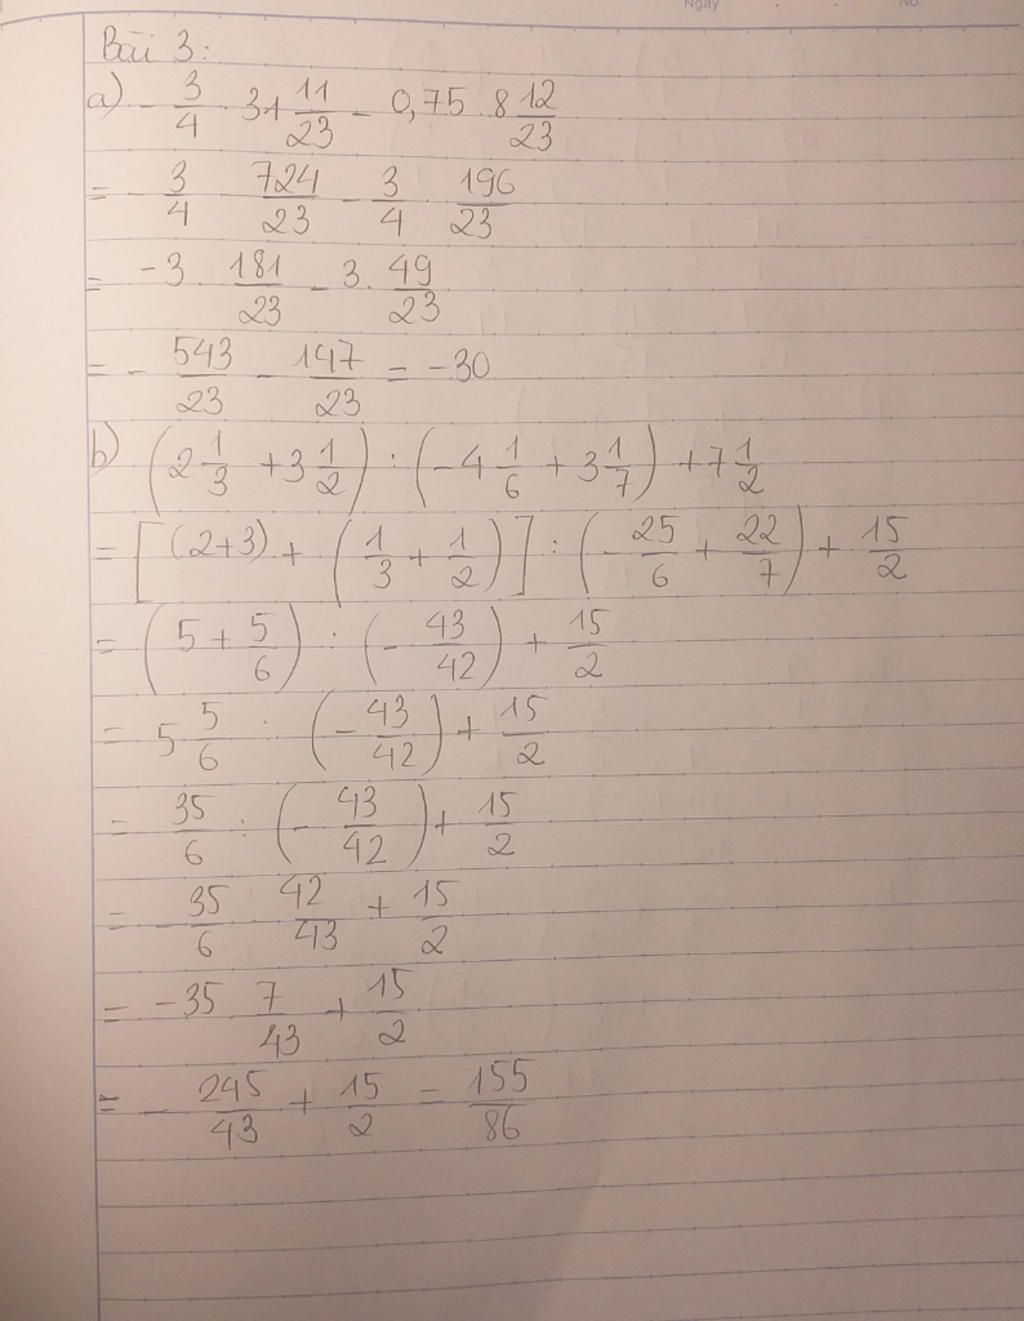 Ngày . . No.
Bài 3:
a) - 3/4 · 31 11/23 - 0,75 8 12/23
= - 3/4 724/23 - 3/4 · 196/23
= -3 · 181/23 - 3 · 49/23
= - 543/23 - 147/23 = -30
b) (2 1/3 + 3 1/2) : (-4 1/6 + 3 1/7) + 7 1/2
= [(2+3) + (1/3 + 1/2)] : (- 25/6 + 22/7) + 15/2
= (5 + 5/6) : (- 43/42) + 15/2
= 5 5/6 : (- 43/42) + 15/2
= 35/6 : (- 43/42) + 15/2
= - 35/6 · 42/43 + 15/2
= -35 7/43 + 15/2
= - 245/43 + 15/2 = 155/86